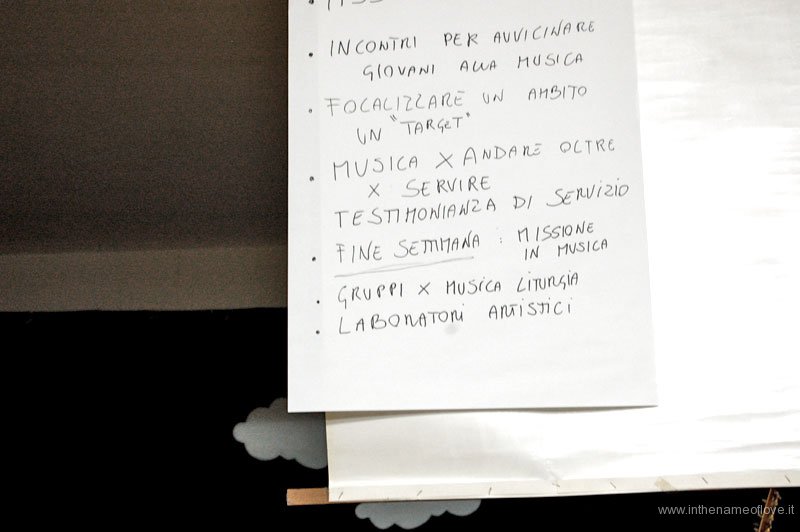 • INCONTRI PER AVVICINARE
GIOVANI ALLA MUSICA
• FOCALIZZARE UN AMBITO
UN "TARGET"
• MUSICA X ANDARE OLTRE
X SERVIRE
TESTIMONIANZA DI SERVIZIO
• FINE SETTIMANA : MISSIONE
IN MUSICA
• GRUPPI X MUSICA LITURGIA
• LABORATORI ARTISTICI
www.inthenameoflove.it